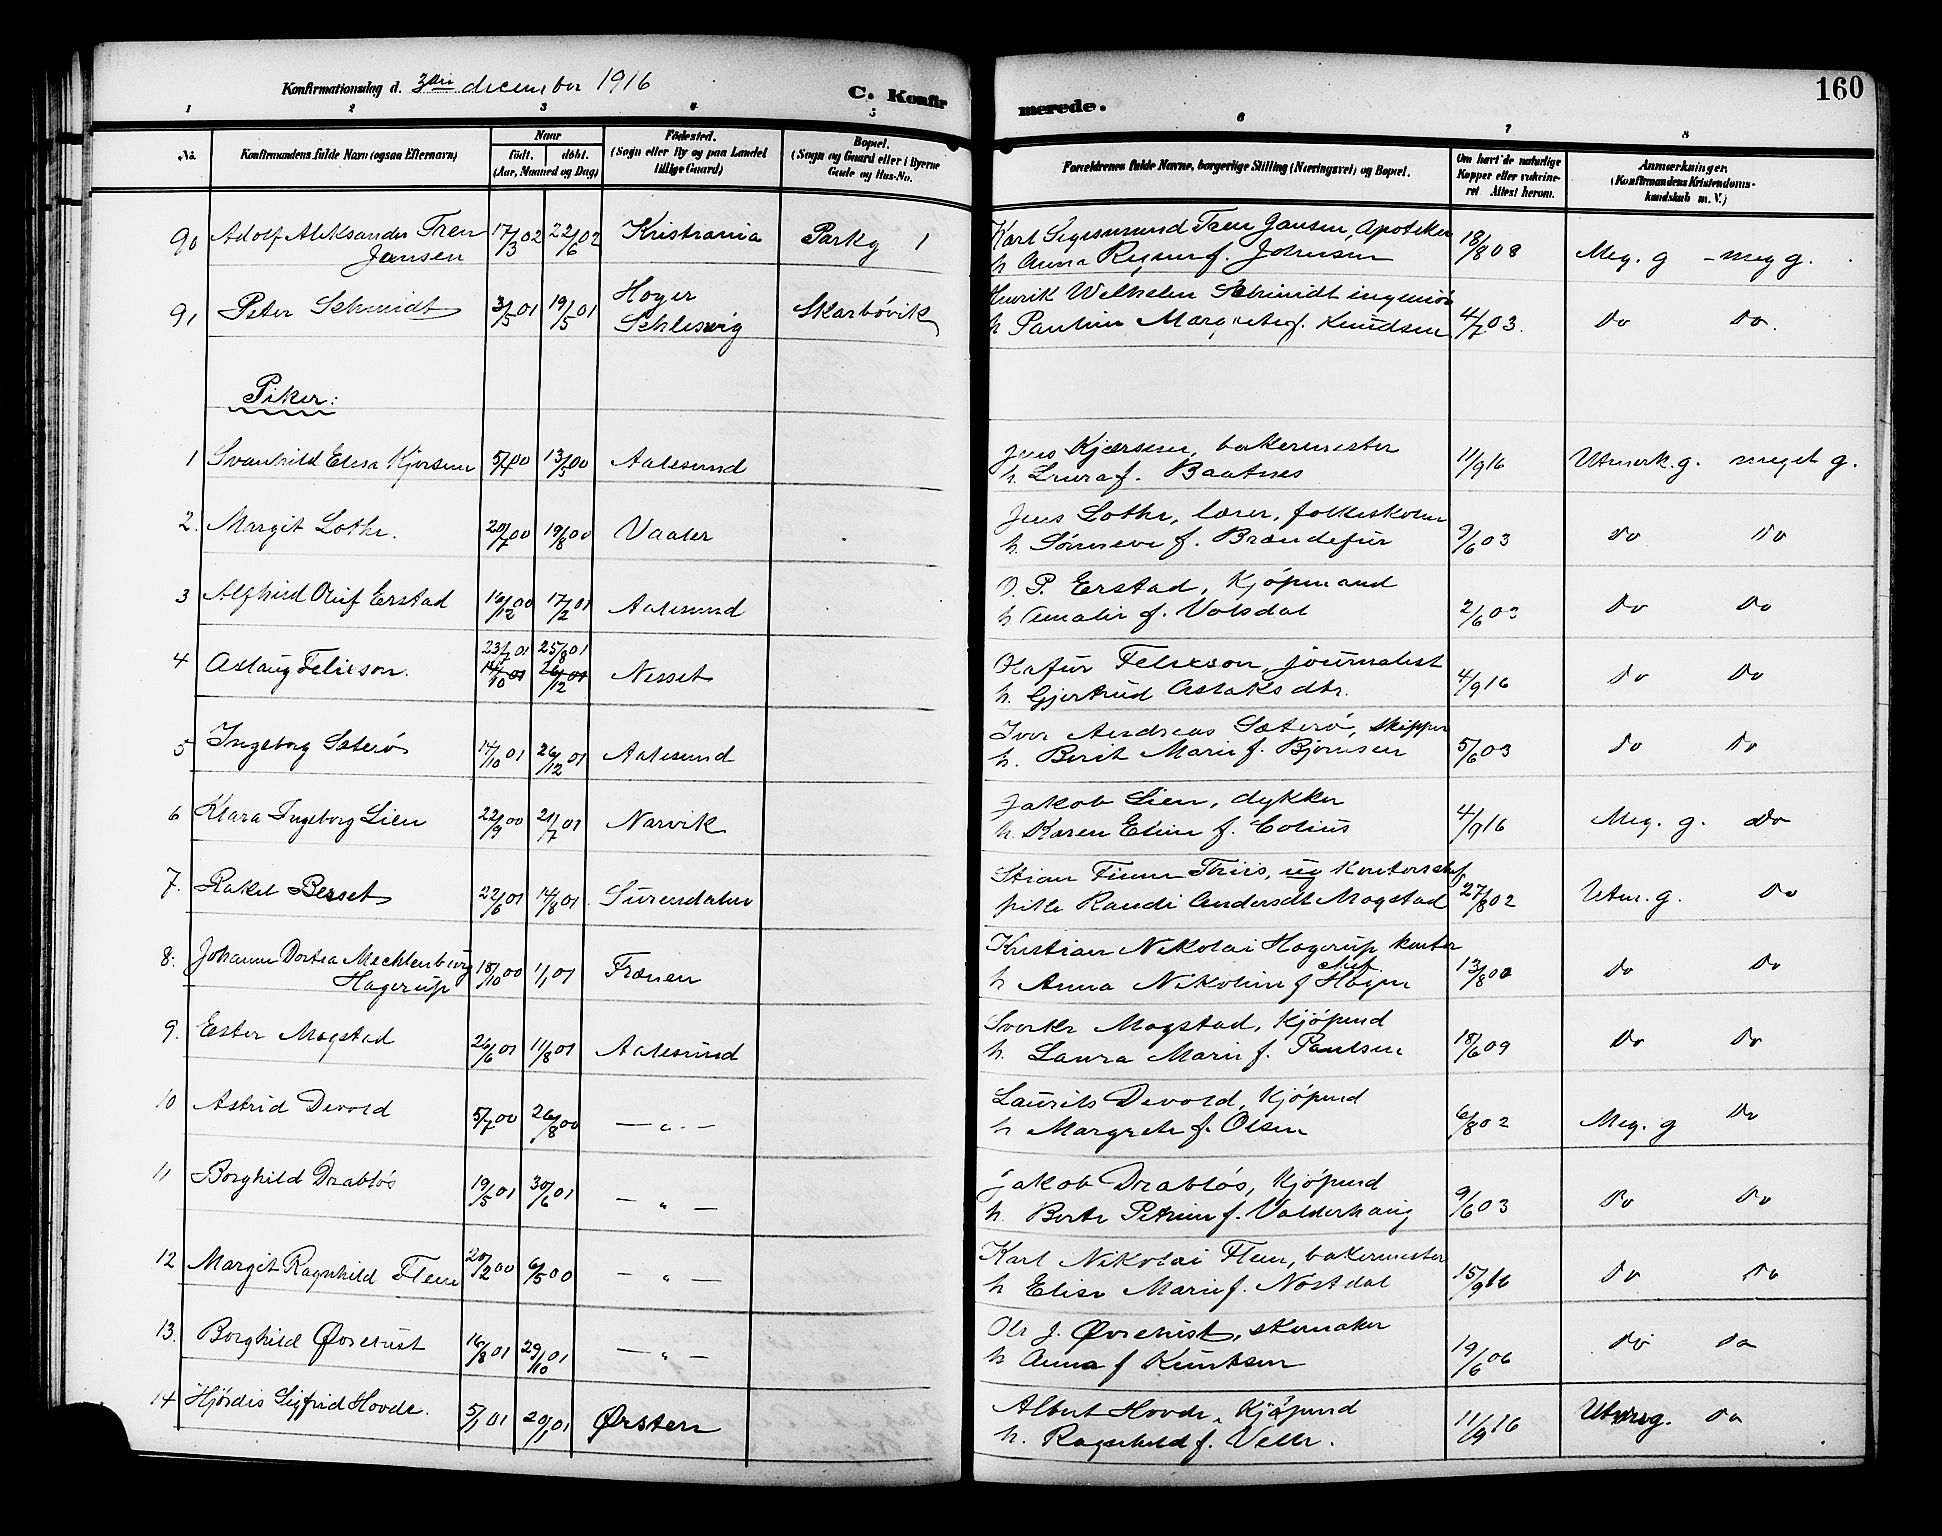 Konfirmationsdag d. 3die december 1916
C. Konfirmerede.
160
1 2 3 4 5 6 7 8
No. Konfirmandens fulde Navn (ogsaa Efternavn) Naar født. døbt. (Aar, Maaned og Dag) Fødested. (Sogn eller By og paa Landet tillige Gaard) Bopæl. (Sogn og Gaard eller i Byerne Gade og Hus-No. Forældrenes fulde Navne, borgerlige Stilling (Næringsvei) og Bopæl. Om havt de naturlige Kopper eller vakcineret. Attest herom. Anmærkninger. (Konfirmandens Kristendomskundskab m. V.)
90 Adolf Aleksander Tren 17/3 02 22/6 02 Kristiania Parkg 1 Karl Sigismund Tren Jansen, Apoteker 18/8 08 Meg. g - meg g.
Jansen h Anna f. Johnsen
91 Peter Schmidt 3/5 01 19/5 01 Hoyer Schleswig Skarbøvik Henrik Wilhelm Schmidt ingeniør 4/7 03. do do.
h Pauline Margrethe f. Knudsen
Piker:
1 Svanhild Elisa Kjersem 5/4 00 13/5 00 Aalesund Jens Kjærsem, bakermester 11/9 16 Utmerk. g. meget g.
h. Laura f. Baatnes
2. Margit Lothe. 20/7 00 19/8 00 Vaaler Jens Lothe, lærer, folkeskolen 9/6 03 do do
h. Sønneve f.
3 Alfhild Oluf Erstad 16/12 00 17/2 01 Aalesund O. P. Erstad, Kjøpmand 2/6 03 do do
h Amalie f. Volsdal
4 Aslaug Felixson. 23/7 01 25/8 01 Nesset Olafur Felixson, journalist 4/9 16 do do
14/10 01 26/12 01 h. Gjertrud Aslaksdtr.
5 Ingeborg Sæterø 14/10 01 26/12 01 Aalesund Iver Andreas Sæterø, skipper 5/6 03 do do
h. Berit Marie f. Bjørnsen
6 Klara Ingeborg Lien 22/9 00 21/7 01 Narvik Jakob Lien, dykker 4/9 16 Meg. g. do
h. Karen Eline f. Colius
7. Rakel Berset 22/6 01 14/8 01 Surendalen Stian Finn Thiis, ug kontorchef 27/8 02 Utm. g. do
pike Randi Andersdt Mogstad
8. Johanne Dortea Mechlenburg 18/10 00 1/1 01 Frænen Kristian Nikolai Hagerup kontor 13/8 00 do do
Hagerup chef
h Anna Nikoline f Hagen
9. Ester Mogstad 26/6 01 11/8 01 Aalesund Sverke Mogstad, Kjøpmd 18/6 09 do do
h. Laura Marie f. Paulsen
10 Astrid Devold 5/7 00 26/8 00 — " — Laurits Devold, Kjøpmd 6/8 02 Meg. g do
h Margrete f. Olsen
11 Borghild Drabløs 19/5 01 30/6 01 — " — Jakob Drabløs, Kjøpmd 9/6 03 do do
h. Berte Petrine f. Valderhaug
12 Margit Ragnhild Flem 20/2 00 6/5 00 — " — Karl Nikolai Flem, bakermester 15/9 16 do do
h Elise Marie f. Nostdal
13. Borghild Øvrerust 16/8 01 29/10 01 — " — Ole J. Øvrerust, skomaker 19/6 06 do do
h Anna f Knutsen
14 Hjørdis Sigfrid Hovde. 5/1 01 20/1 01 Ørsten Albert Hovde, Kjøpmd 11/9 16 Utm g. do
h. Ragnhild f. Velle.